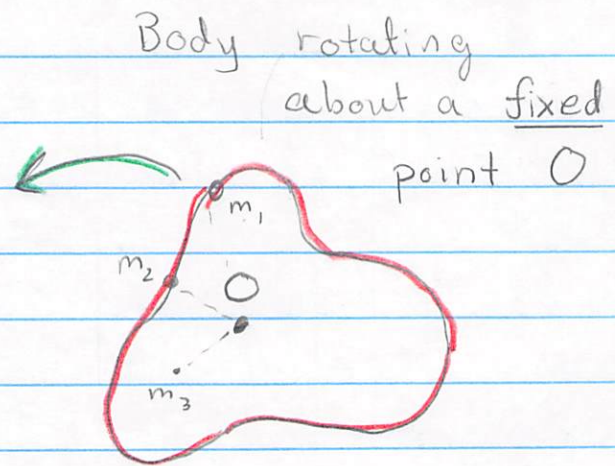 Body rotating
about a fixed
point O
m₁
m₂
O
m₃